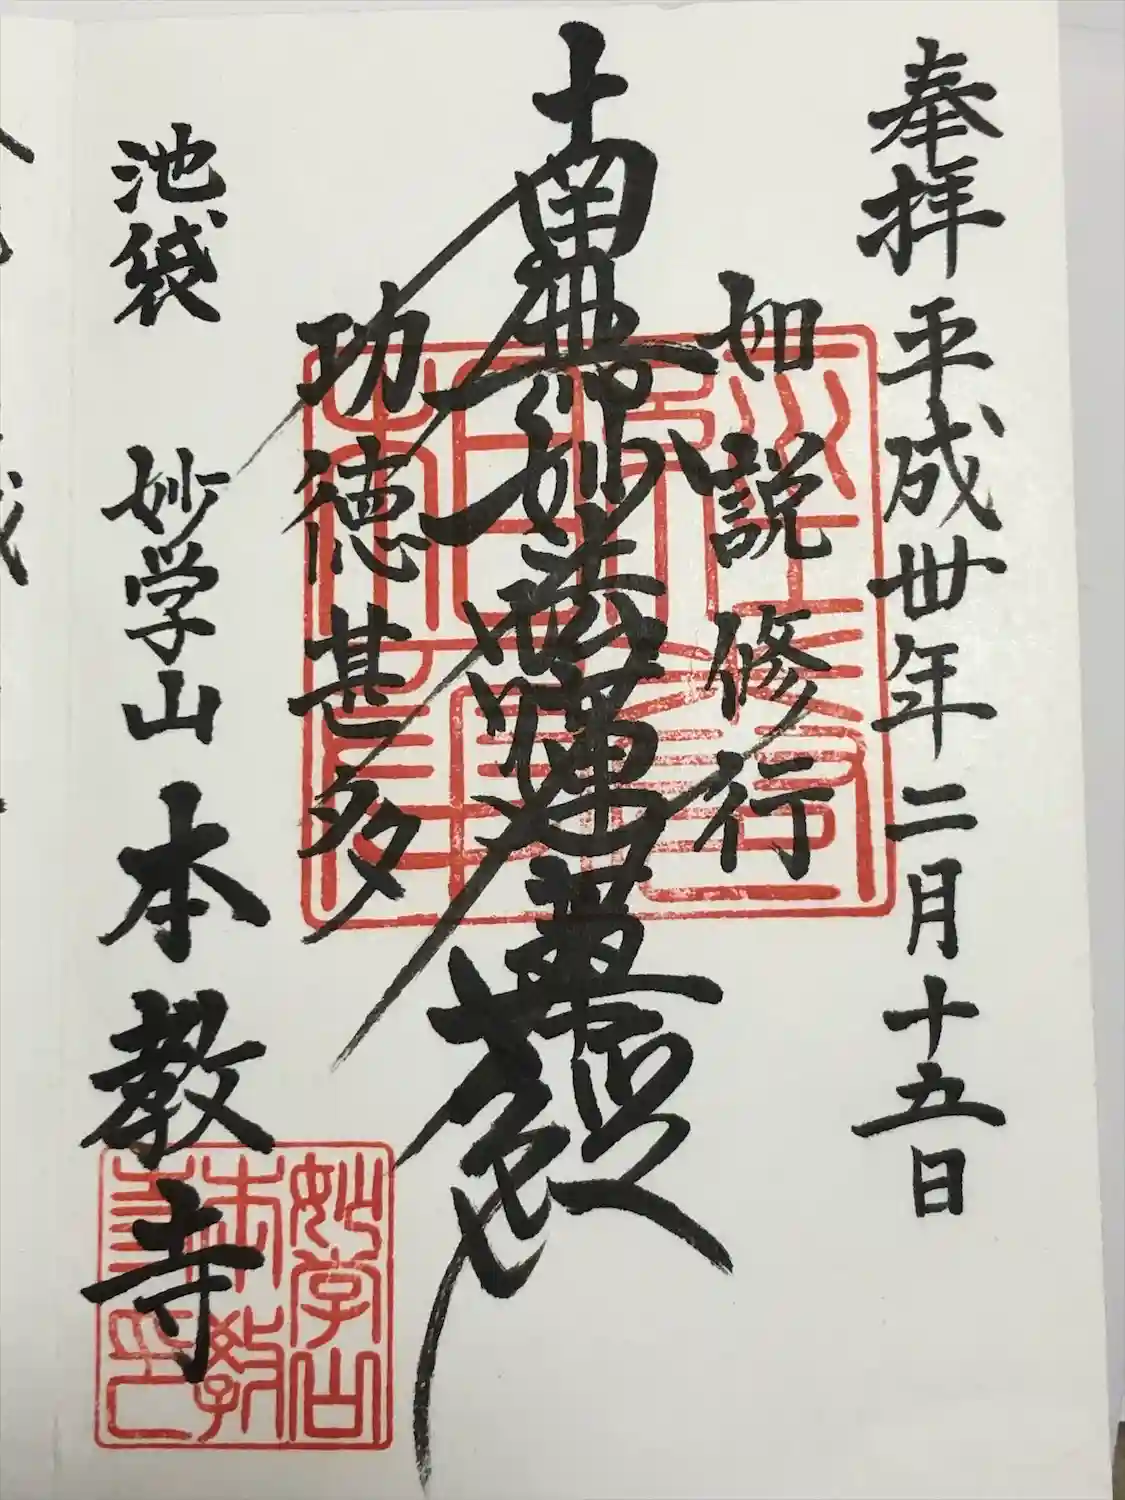 奉拝 平成卅年二月十五日
如説修行
南無妙法蓮華経
功徳甚多
池袋 妙学山 本教寺
妙学山
本教
寺印